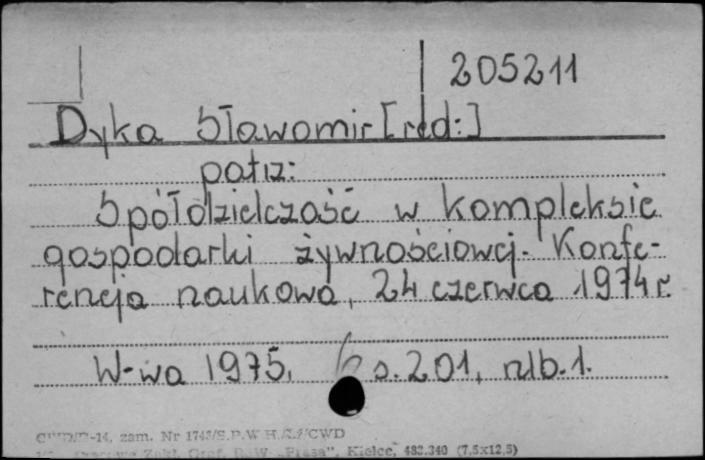 205211
Dyka Sławomir [red:]
patrz:
Spółdzielczość w kompleksie
gospodarki żywnościowej. Konfe-
rencja naukowa, 24 czerwca 1974 r.
W-wa 1975, s. 201, nlb. 1.
-14, zam. Nr 1743/S.P.W.H./CWD
Zakł. Graf. "Prasa", Kielce, 483.340 (7,5x12,5)